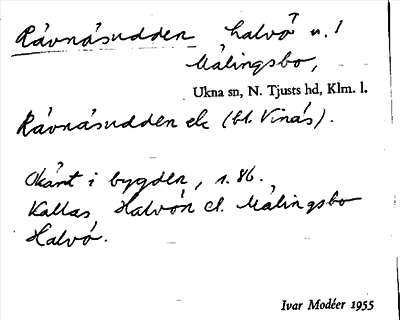 Rävnäsudden halvö u. /
Målingsbo,
Ukna sn, N. Tjusts hd, Klm. l.
Rävnäsudden ek (bl. Vinäs).
Okänt i bygden, s. 86.
Kallas Halvön el. Målingsbo
Halvö.
Ivar Modéer 1955